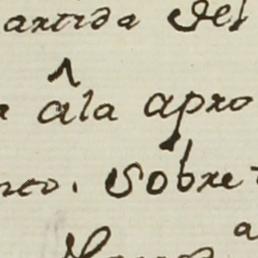 artida del
âla apro
nto. Sobre